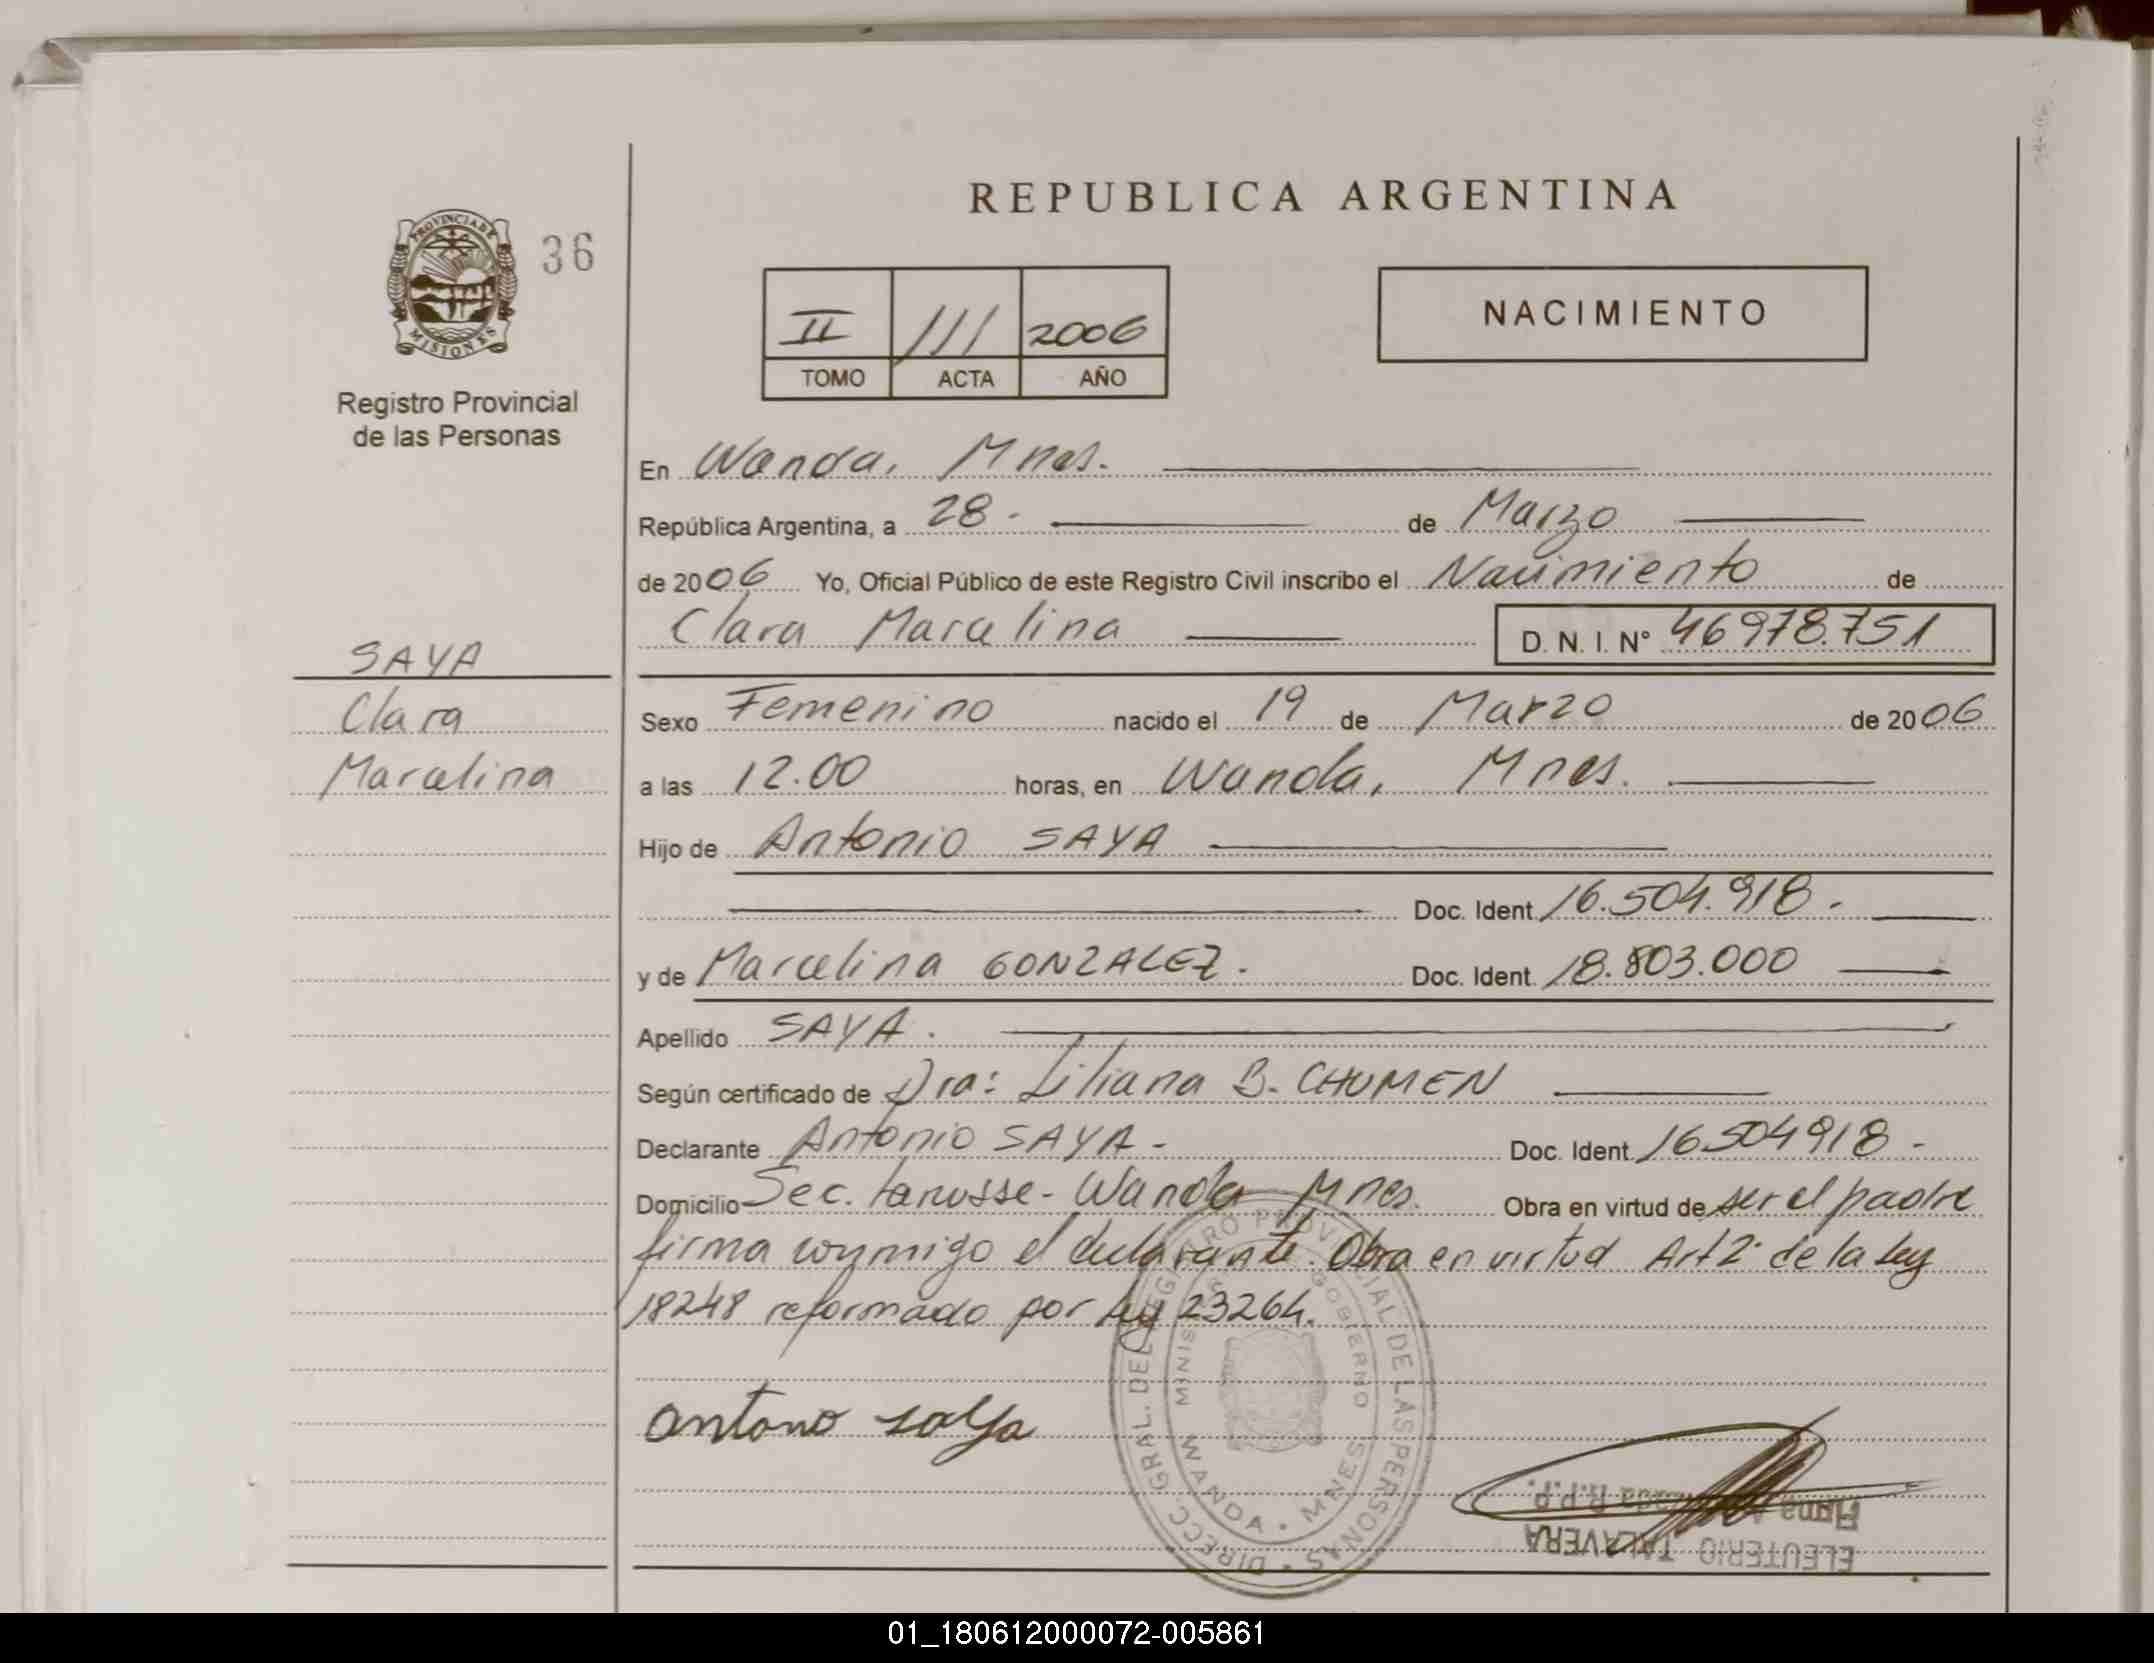 REPUBLICA ARGENTINA
PROVINCIA DE
MISIONES
36
Registro Provincial
de las Personas
II 111 2006
TOMO ACTA AÑO
NACIMIENTO
En Wanda, Mnes.
República Argentina, a 28 - de Marzo
de 2006 Yo, Oficial Público de este Registro Civil inscribo el Nacimiento de
Clara Marcelina D. N. I. N° 46978.751
SAYA
Clara
Marcelina
Sexo Femenino nacido el 19 de Marzo de 2006
a las 12.00 horas, en Wanda, Mnes.
Hijo de Antonio SAYA
Doc. Ident. 16.504.918.-
y de Marcelina GONZALEZ. Doc. Ident. 18.803.000
Apellido SAYA.
Según certificado de Dra: Liliana B. CHUMEN
Declarante Antonio SAYA - Doc. Ident. 16504918 -
Domicilio Sec. Lanusse - Wanda Mnes. Obra en virtud de ser el padre
firma conmigo el declarante. Obra en virtud Art 2° de la Ley
18248 reformado por Ley 23264.
DIRECC. GRAL. DEL REGISTRO PROVINCIAL DE LAS PERSONAS
GOBIERNO
WANDA • MNES
Antonio saya
ELEUTERIO TALAVERA
Firma R.P.P.
01_180612000072-005861